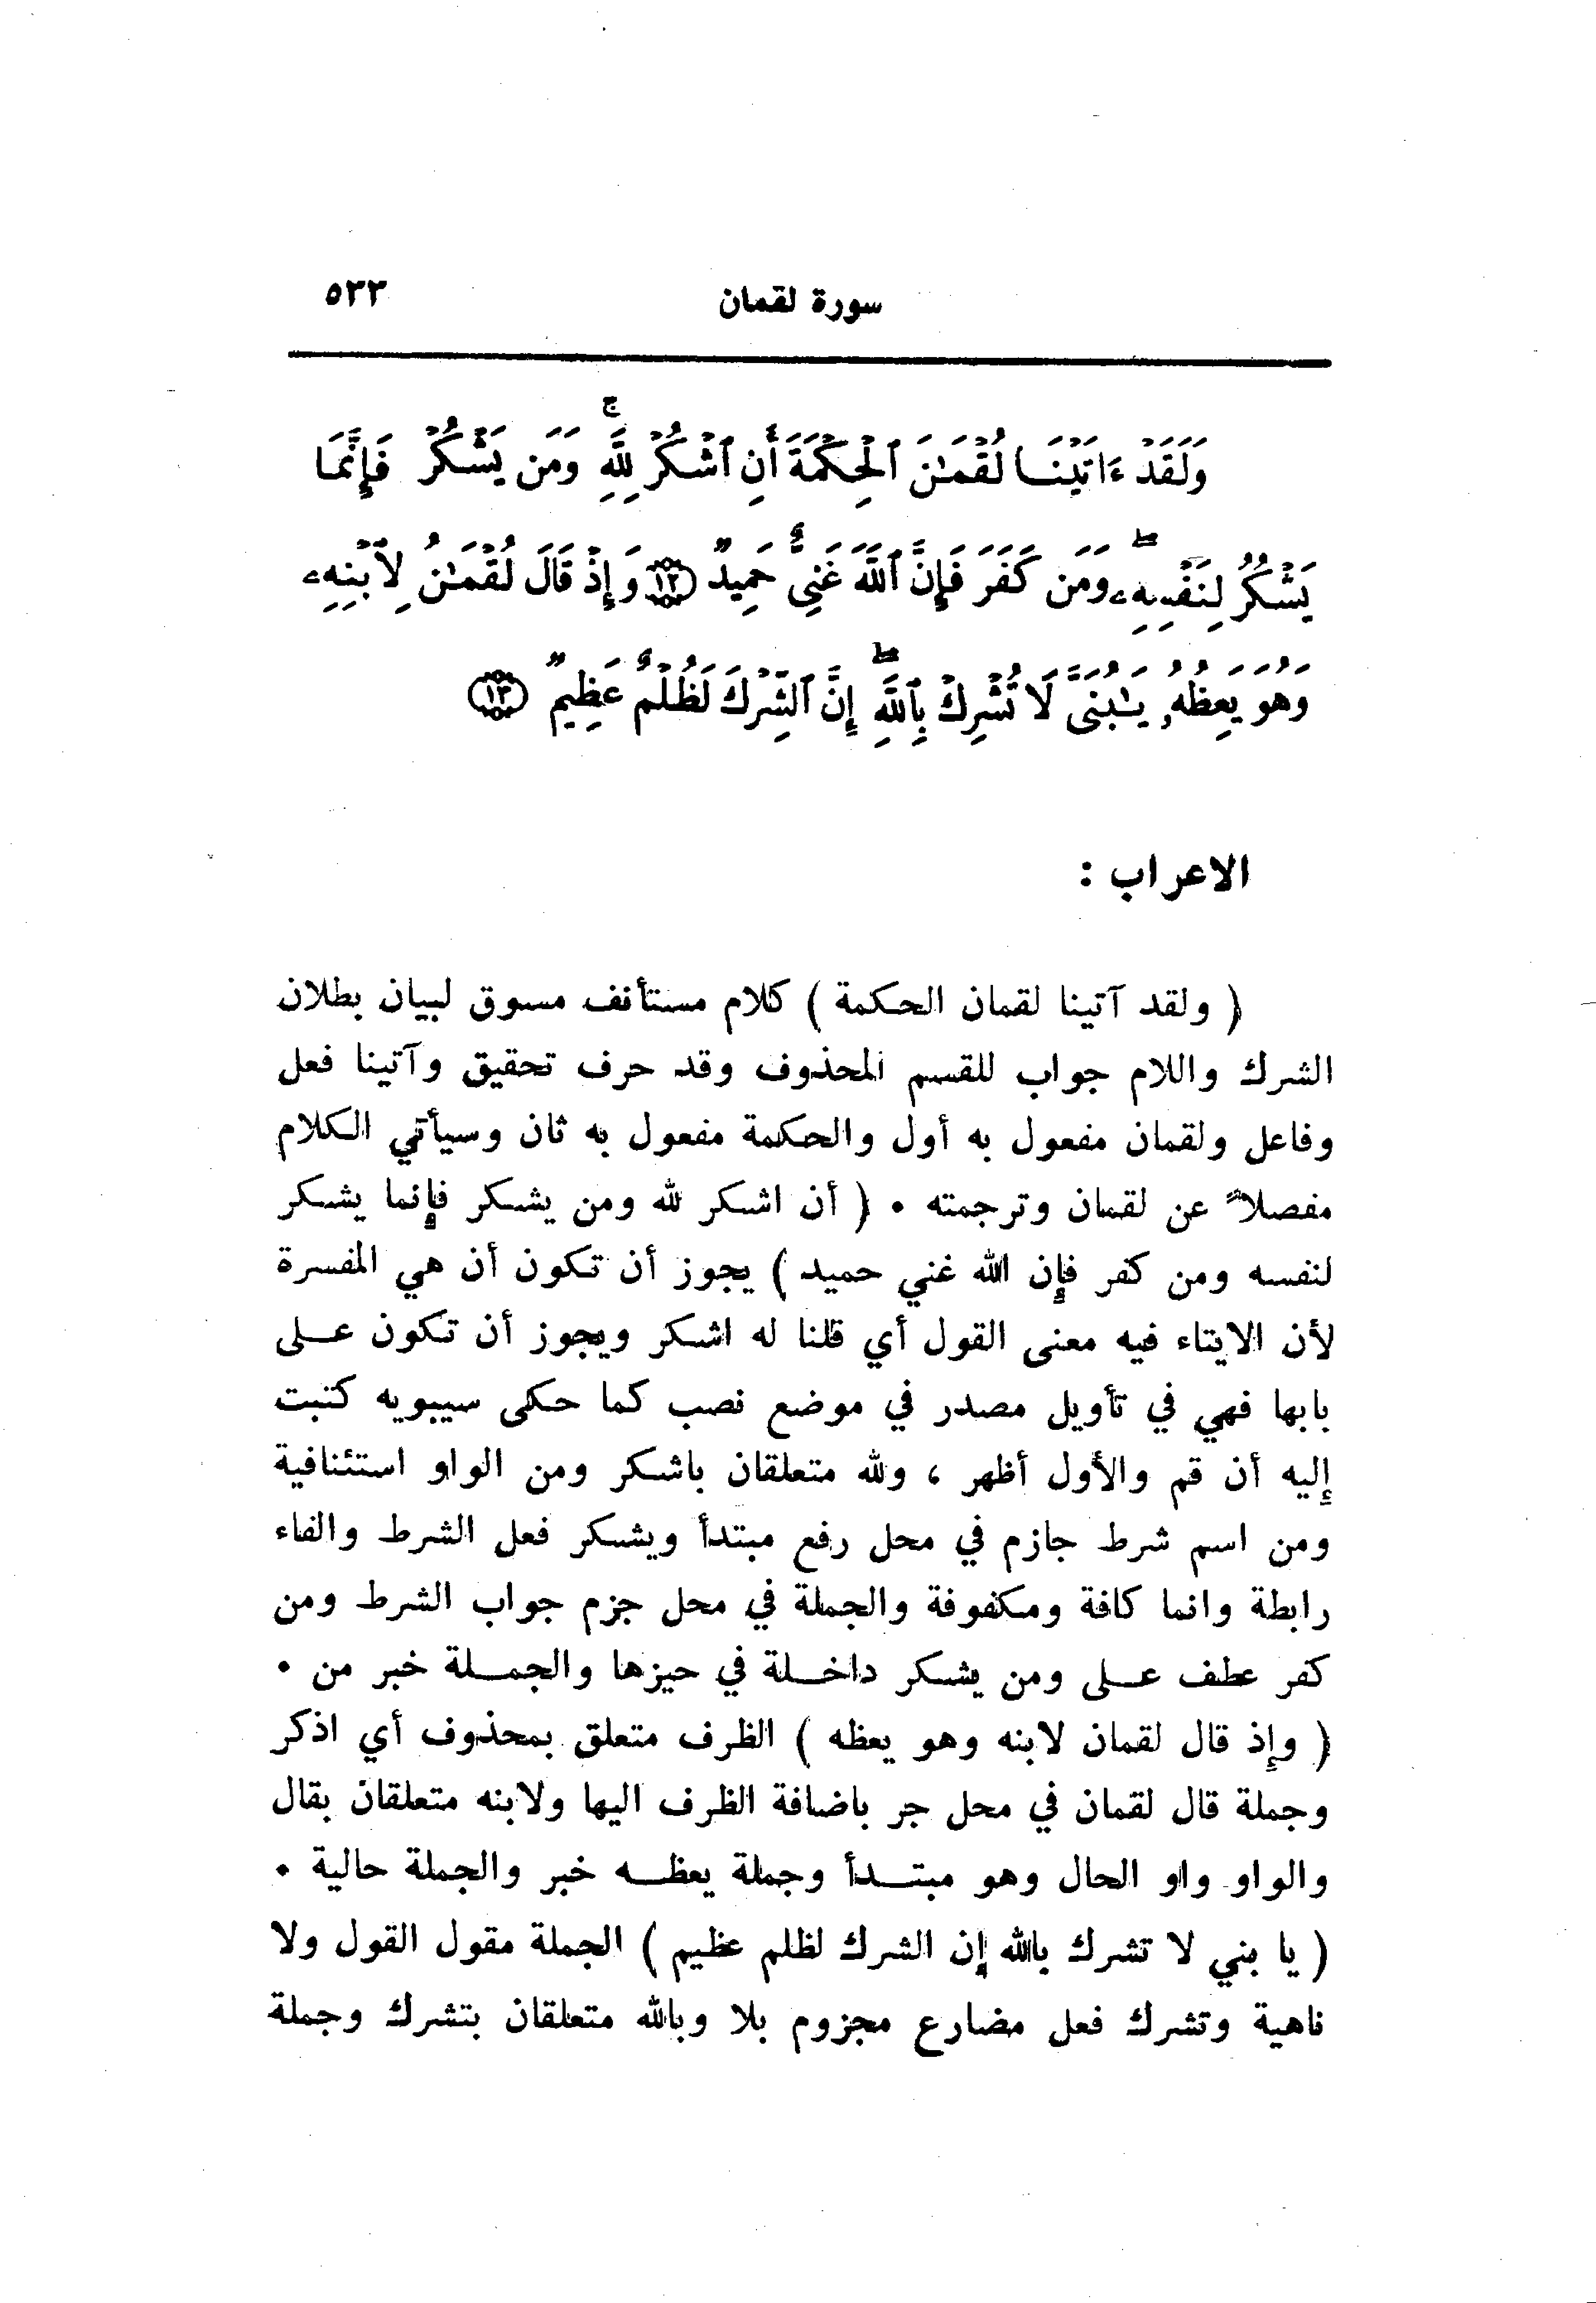 سورة لقمان ٥٣٣
وَلَقَدْ ءَاتَيْنَا لُقْمَٰنَ ٱلْحِكْمَةَ أَنِ ٱشْكُرْ لِلَّهِ ۚ وَمَن يَشْكُرْ فَإِنَّمَا
يَشْكُرُ لِنَفْسِهِۦ ۖ وَمَن كَفَرَ فَإِنَّ ٱللَّهَ غَنِىٌّ حَمِيدٌ ⁧(١٢) وَإِذْ قَالَ لُقْمَٰنُ لِٱبْنِهِۦ
وَهُوَ يَعِظُهُۥ يَٰبُنَىَّ لَا تُشْرِكْ بِٱللَّهِ ۖ إِنَّ ٱلشِّرْكَ لَظُلْمٌ عَظِيمٌ (١٣)
الاعراب :
( ولقد آتينا لقمان الحكمة ) كلام مستأنف مسوق لبيان بطلان
الشرك واللام جواب للقسم المحذوف وقد حرف تحقيق وآتينا فعل
وفاعل ولقمان مفعول به أول والحكمة مفعول به ثان وسيأتي الكلام
مفصلاً عن لقمان وترجمته • ( أن اشكر لله ومن يشكر فإنما يشكر
لنفسه ومن كفر فإن الله غني حميد ) يجوز أن تكون أن هي المفسرة
لأن الايتاء فيه معنى القول أي قلنا له اشكر ويجوز أن تكون على
بابها فهي في تأويل مصدر في موضع نصب كما حكى سيبويه كتبت
إليه أن قم والأول أظهر ، ولله متعلقان باشكر ومن الواو استئنافية
ومن اسم شرط جازم في محل رفع مبتدأ ويشكر فعل الشرط والفاء
رابطة وانما كافة ومكفوفة والجملة في محل جزم جواب الشرط ومن
كفر عطف على ومن يشكر داخلة في حيزها والجملة خبر من •
( وإذ قال لقمان لابنه وهو يعظه ) الظرف متعلق بمحذوف أي اذكر
وجملة قال لقمان في محل جر باضافة الظرف اليها ولابنه متعلقان بقال
والواو واو الحال وهو مبتدأ وجملة يعظه خبر والجملة حالية •
( يا بني لا تشرك بالله إن الشرك لظلم عظيم ) الجملة مقول القول ولا
ناهية وتشرك فعل مضارع مجزوم بلا وبالله متعلقان بتشرك وجملة